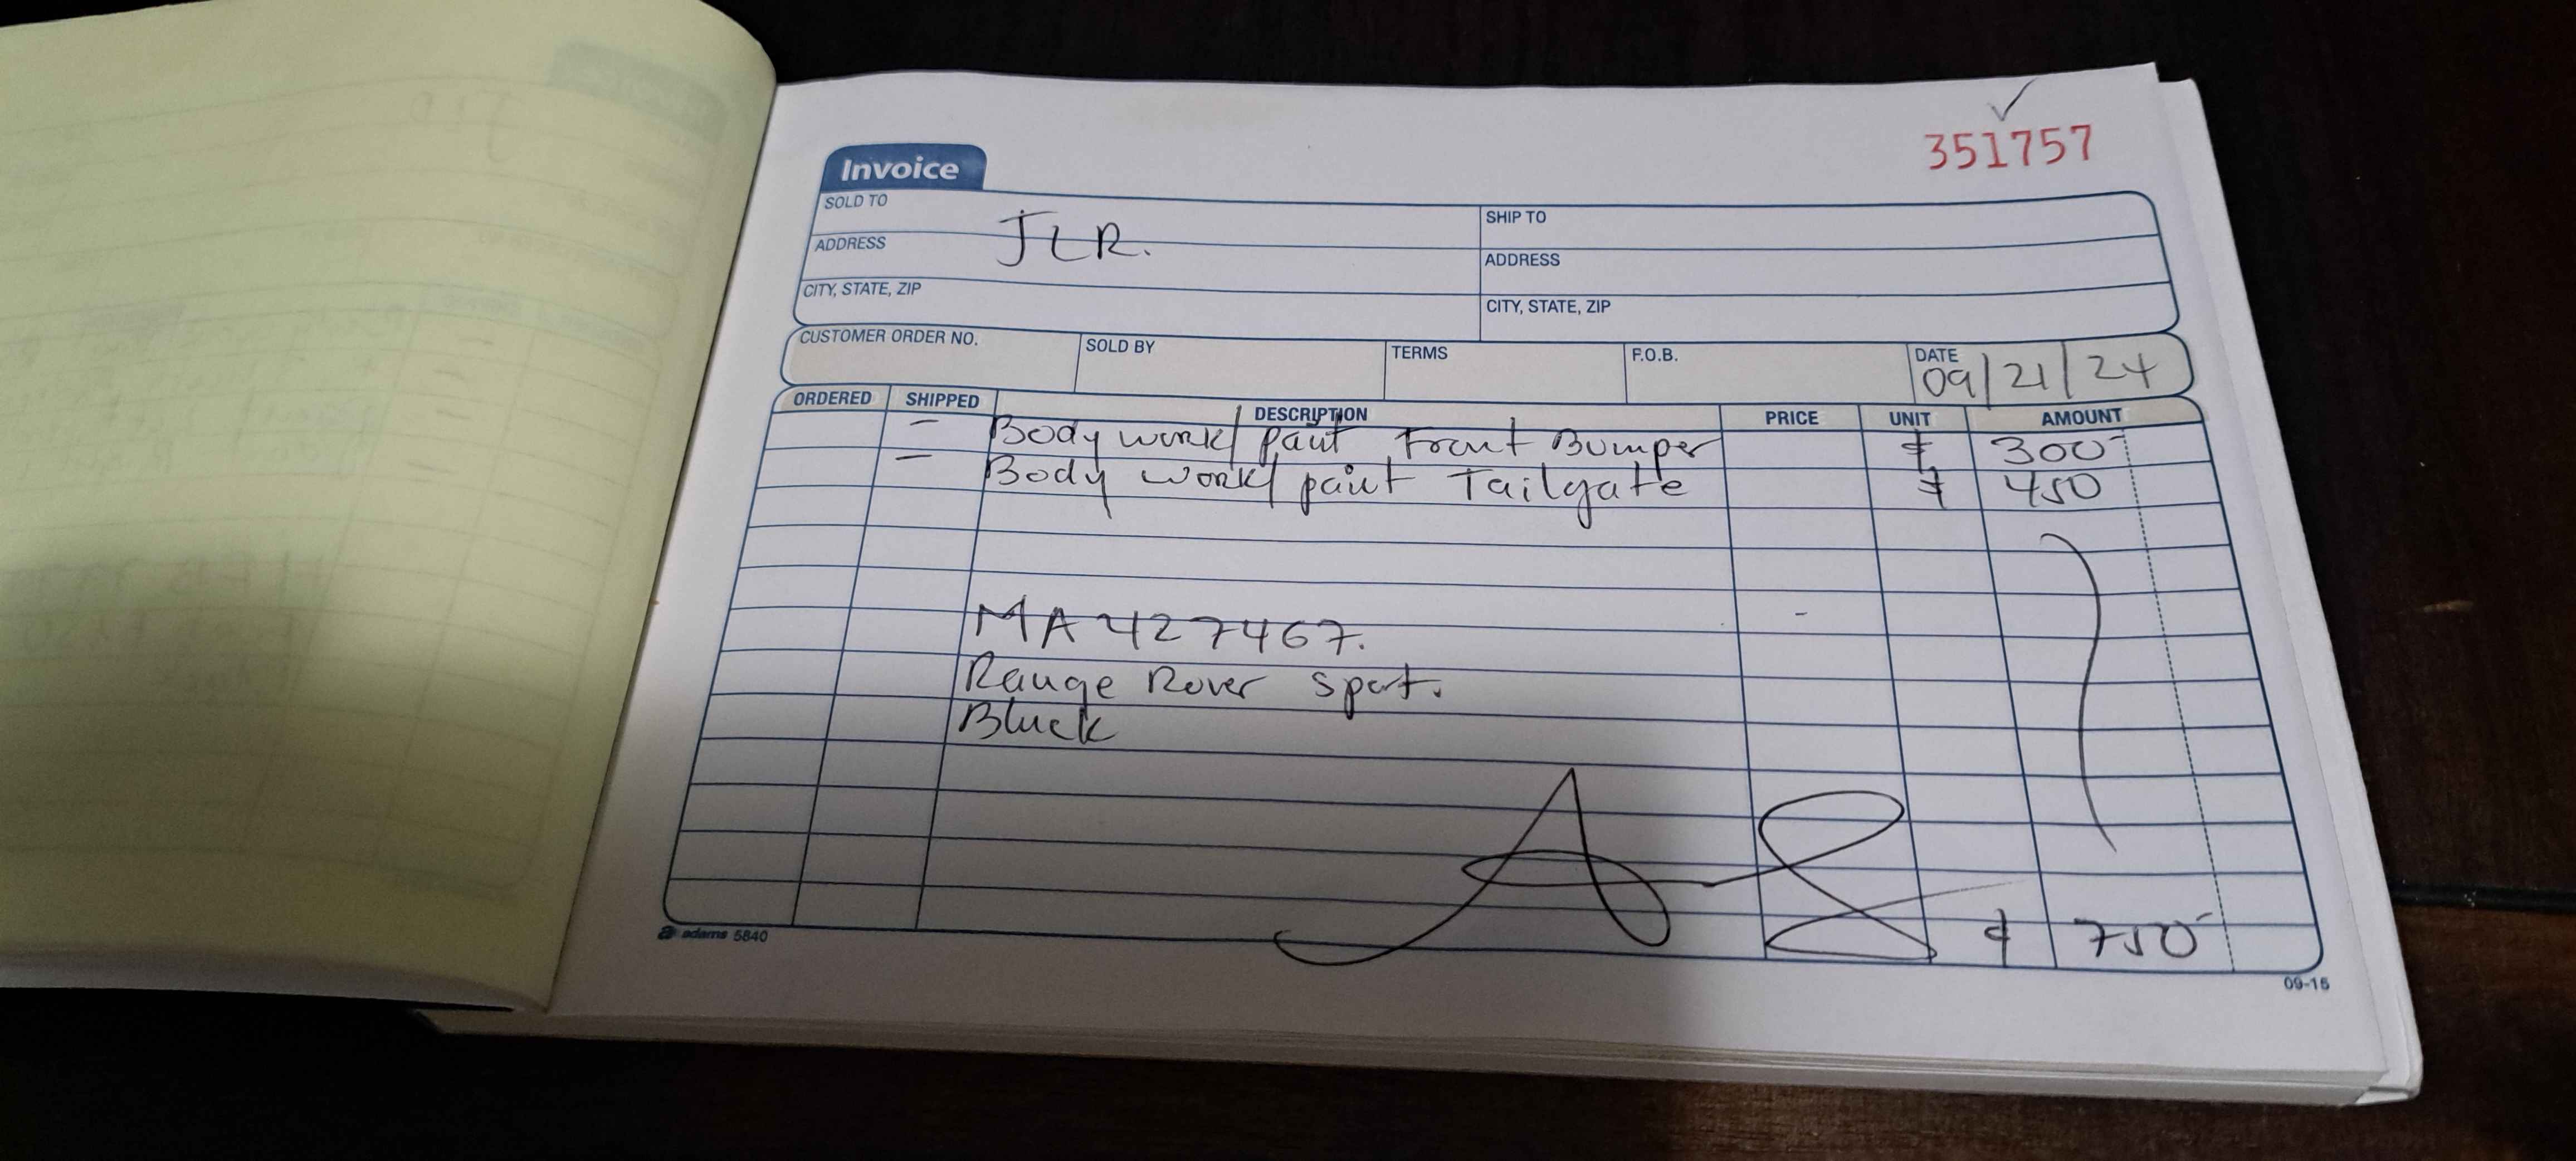 351757
Invoice
SOLD TO
JLR.
SHIP TO
ADDRESS
ADDRESS
CITY, STATE, ZIP
CITY, STATE, ZIP
CUSTOMER ORDER NO. SOLD BY TERMS F.O.B. DATE 09/21/24
ORDERED SHIPPED DESCRIPTION PRICE UNIT AMOUNT
- Body work/ paint Front Bumper $ 300-
- Body work/ paint Tailgate $ 450
MA427467.
Range Rover Sport.
Black
$ 750-
adams 5840
09-15